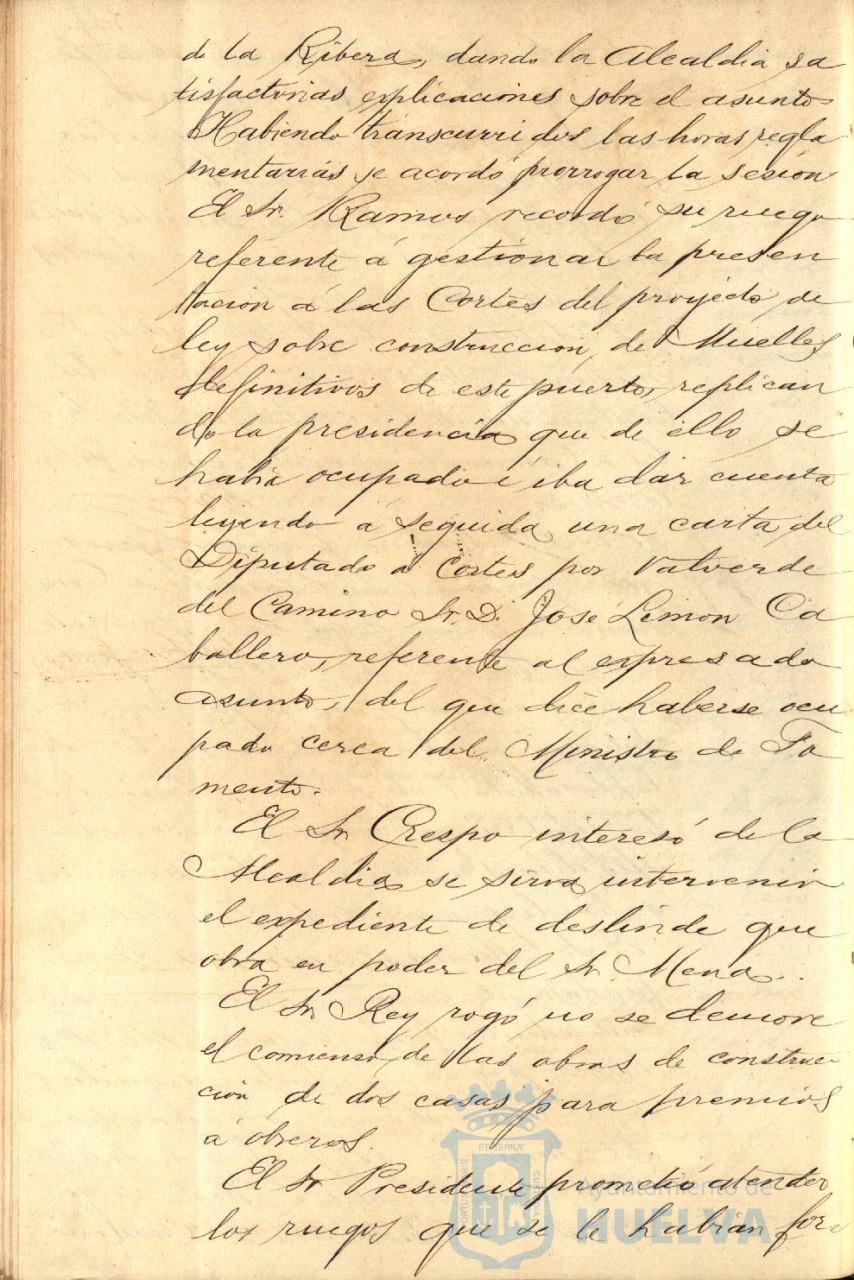 de la Ribera, dando la Alcaldia sa
tisfactorias explicaciones sobre el asunto
Habiendo transcurrido las horas regla
mentarias se acordó prorrogar la sesión
El Sr. Ramos recordó su ruego
referente á gestionar la presen
tacion á las Cortes del proyecto de
ley sobre construccion de Muelles
definitivos de este puerto, replican
do la presidencia que de ello se
habia ocupado é iba dar cuenta
leyendo á seguida una carta del
Diputado á Cortes por Valverde
del Camino Sr. D. Jose Limon Ca
ballero, referente al expresado
asunto, del que dice haberse ocu
pado cerca del Ministro de Fo
mento.
El Sr Crespo interesó de la
Alcaldia se sirva intervenir
el expediente de deslinde que
obra en poder del Sr. Mena.
El Sr Rey rogó no se demore
el comienso de las obras de construc-
ción de dos casas para premios
á obreros.
El Sr Presidente prometió atender
los ruegos que se le habian for
Ayuntamiento de
HUELVA